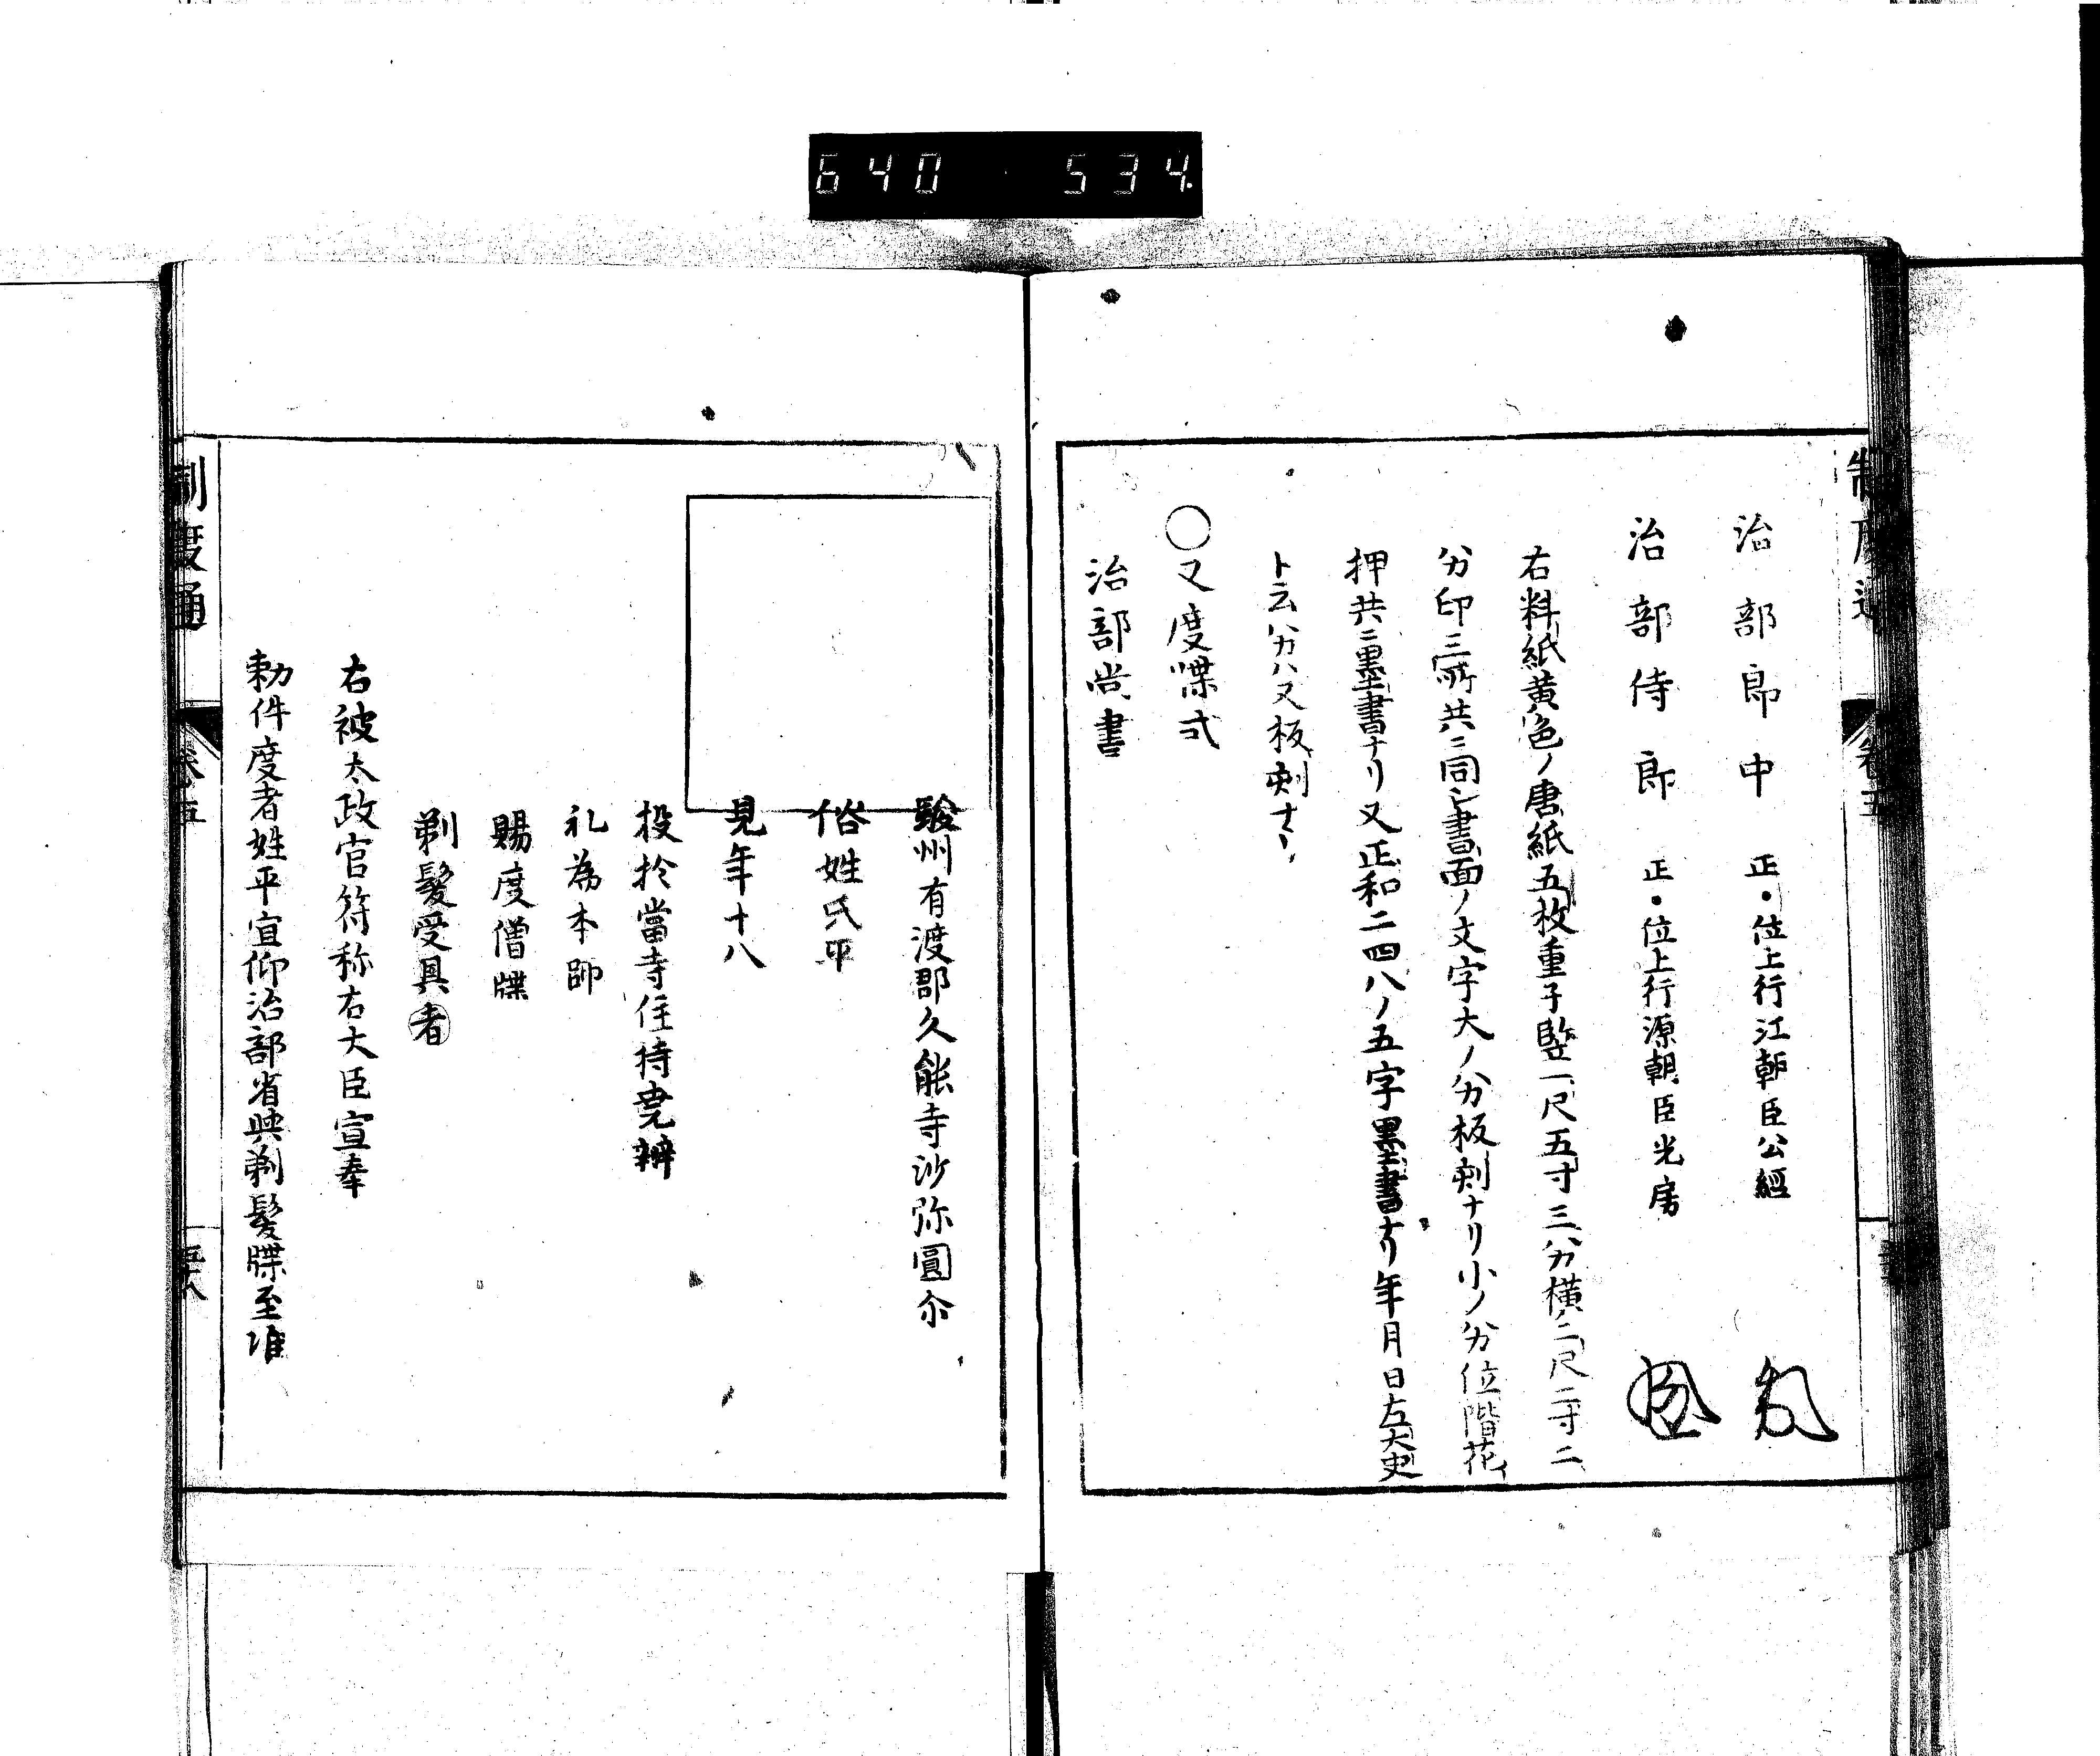 640 534
制度通 卷五
治部郎中 正・位上行江朝臣公經
治部侍郎 正・位上行源朝臣光房
右料紙黄色ノ唐紙五枚重子竪一尺五寸三分横二尺二寸二
分印三所共ニ同シ書面ノ文字大ノ分板刻ナリ小ノ分位階花
押共ニ墨書ナリ又正和二四八ノ五字墨書ナリ年月日左大史
ト云分ハ又板刻ナリ
〇又度牒式
治部尚書
駿州有渡郡久能寺沙弥圓尓
俗姓氏平
見年十八
投於當寺住持尭辨
礼為本師
賜度僧牒
剃髪受具者
右被太政官符称右大臣宣奉
勅件度者姓平宜仰治部省與剃髪牒至准
制度通 卷五 五十八